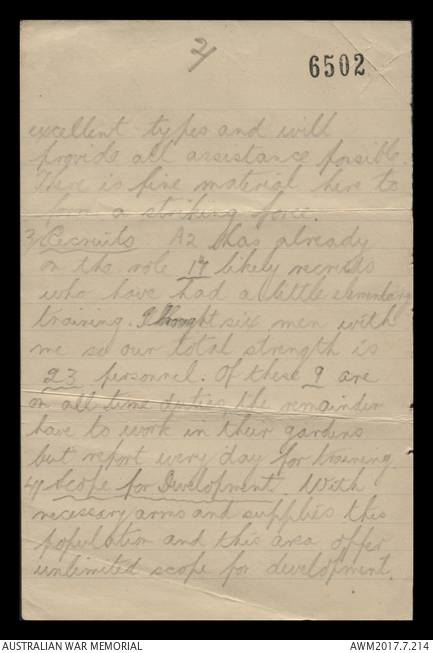 2/
6502
excellent types and will
provide all assistance possible.
There is fine material here to
form a striking force.
3/ Recruits A2 has already
on the role 17 likely recruits
who have had a little elementary
training. I brought six men with
me so our total strength is
23 personnel. Of these 9 are
on all time duties, the remainder
have to work in their gardens
but report every day for training.
4/ Scope for Development. With
necessary arms and supplies this
population and this area offer
unlimited scope for development.
AUSTRALIAN WAR MEMORIAL
AWM2017.7.214